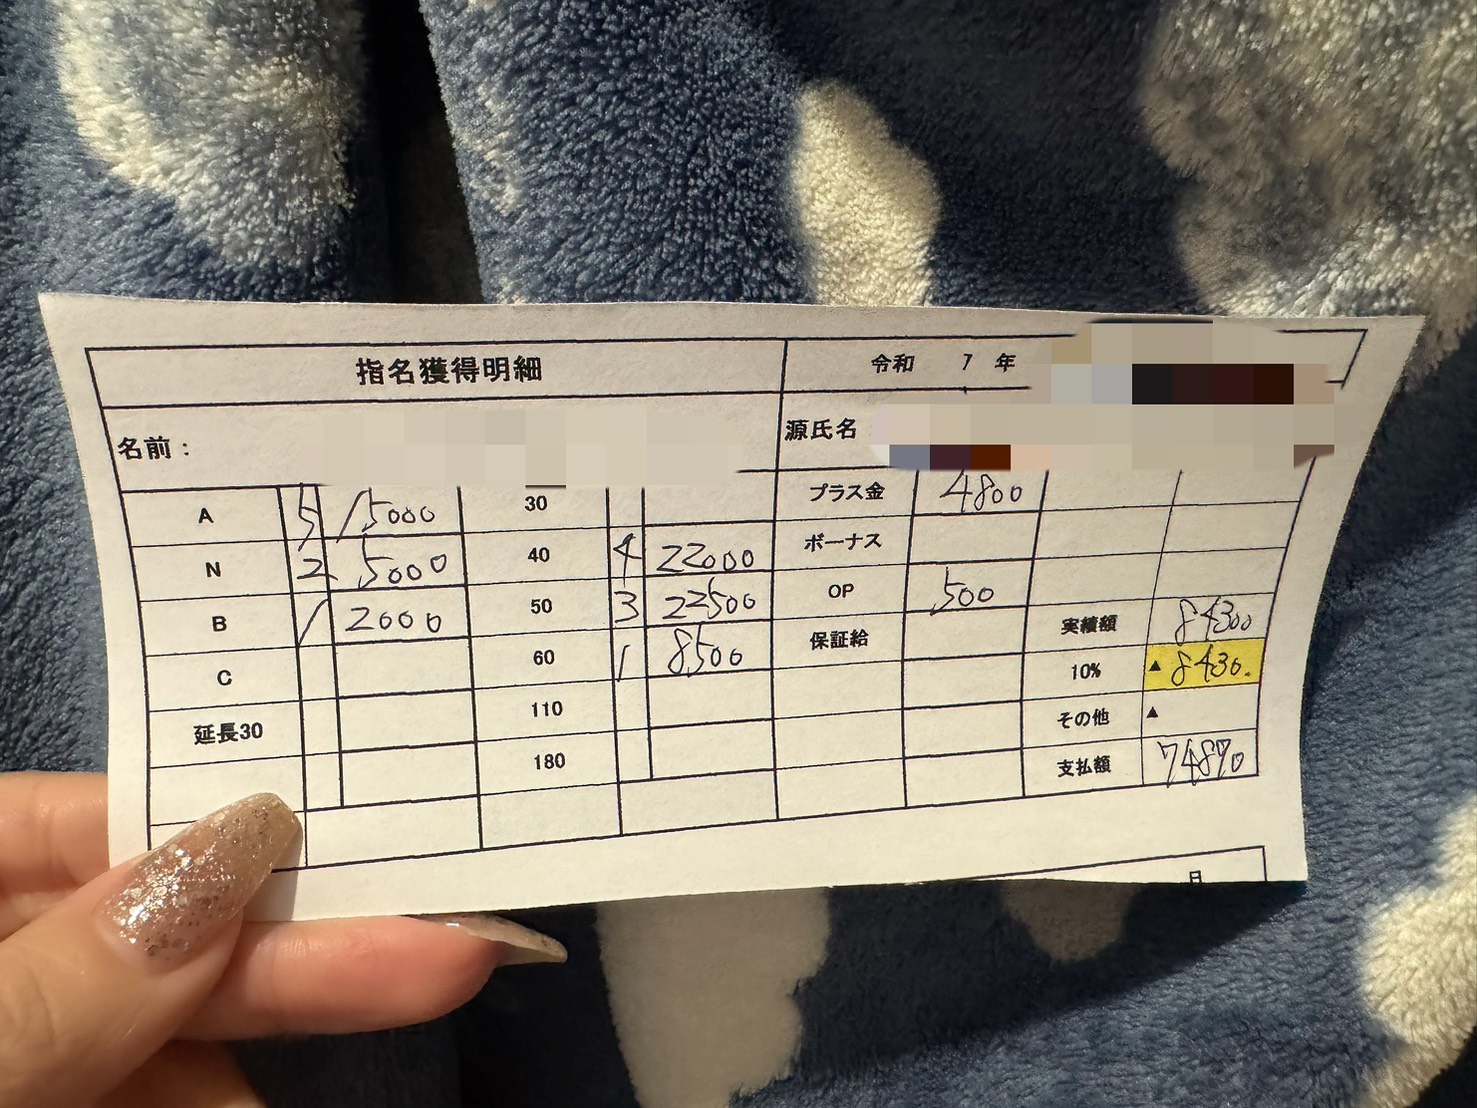 指名獲得明細 令和 7 年
名前： 源氏名
A 5 15000 30 プラス金 4800
N 2 5000 40 4 22000 ボーナス
B 1 2000 50 3 22500 OP 500
C 60 1 8500 保証給 実績額 84300
延長30 110 10% ▲ 8430.
180 その他 ▲
支払額 74870
月